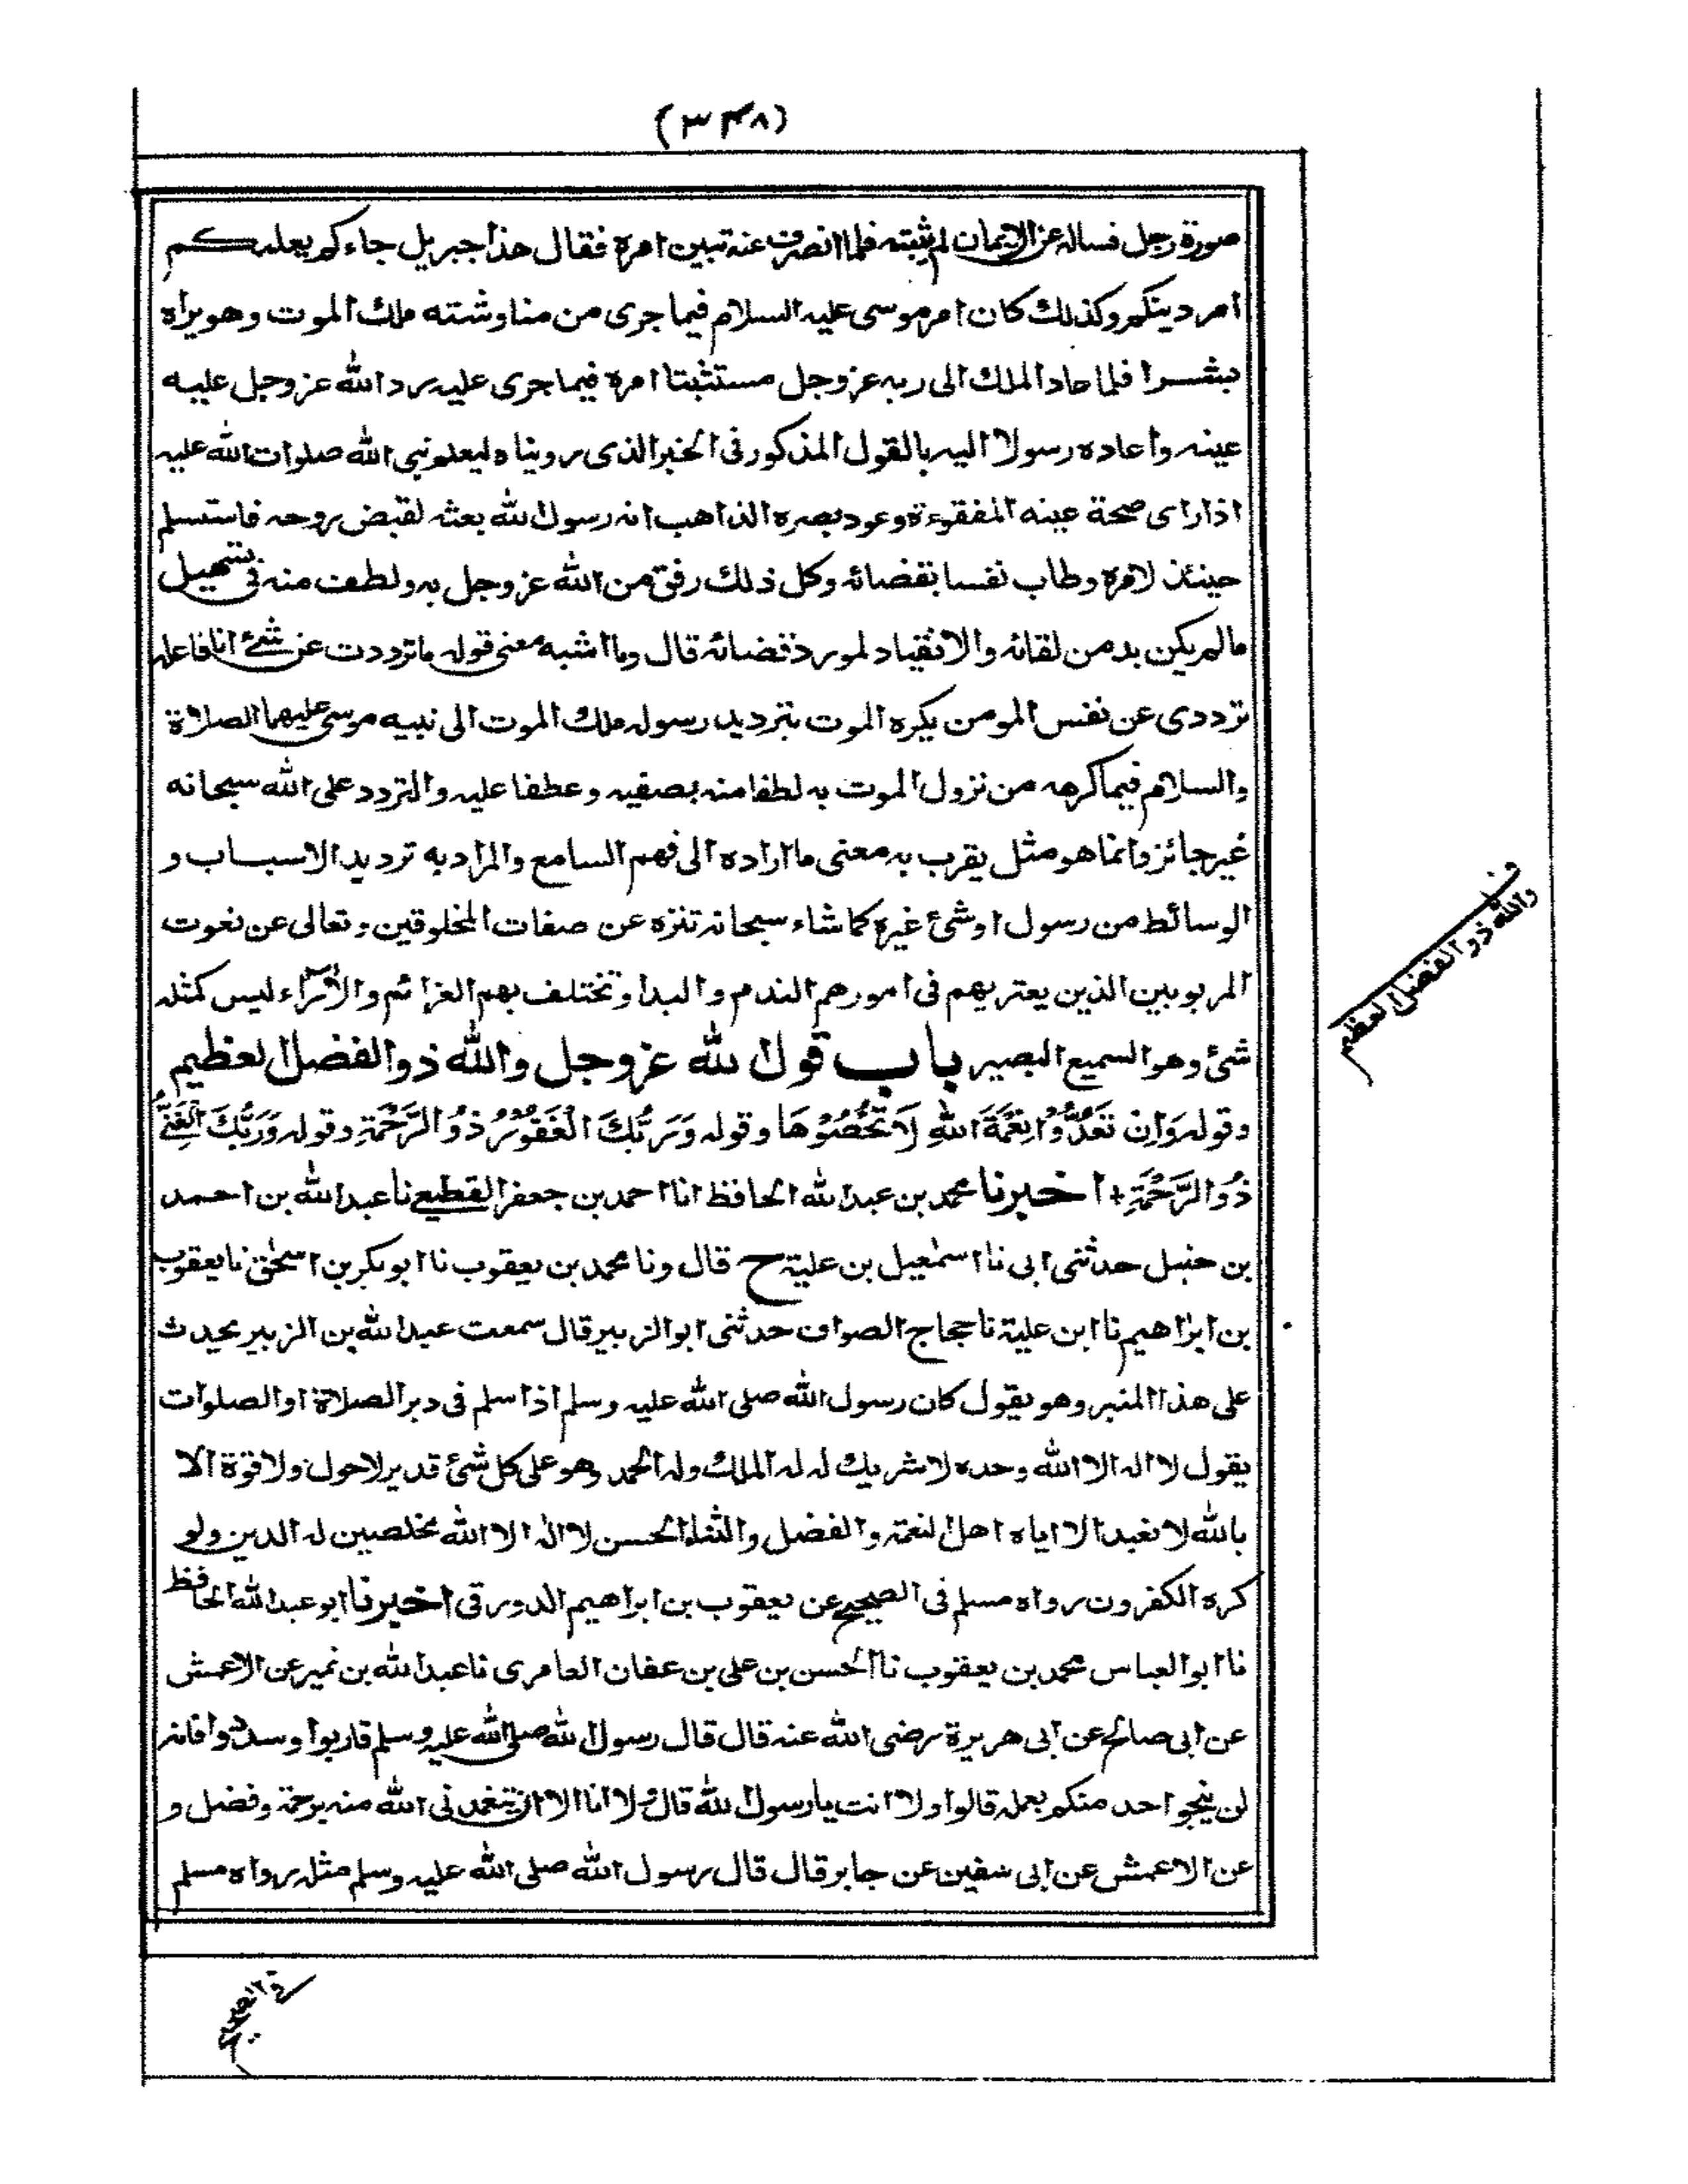 (٣٤٨)
صورة رجل فساله عن الايمان لم يثبته فلما انصرف عنه تبين امره فقال هذا جبريل جاءكم يعلمكم
امر دينكم وكذلك كان امر موسى عليه السلام فيما جرى من مناوشته ملك الموت وهو يراه
بشرا فلما عاد الملك الى ربه عز وجل مستثبتا امره فيما جرى عليه رد الله عز وجل عليه
عينه واعاده رسولا اليه بالقول المذكور فى الخبر الذى رويناه ليعلم نبى الله صلوات الله عليه
اذا راى صحة عينه المفقوءة وعود بصره الذاهب انه رسول الله بعثه لقبض روحه فاستسلم
حينئذ لامره وطاب نفسا بقضائه وكل ذلك رفق من الله عز وجل به ولطف منه فى تسهيل
ما لم يكن بد من لقائه والانقياد لمورد قضائه قال وما اشبه معنى قوله ما ترددت عن شئ انا فاعله
ترددى عن نفس المومن يكره الموت بترديد رسوله ملك الموت الى نبيه موسى عليهما الصلاة
والسلام فيما كرهه من نزول الموت به لطفا منه بصفيه وعطفا عليه والتردد على الله سبحانه
غير جائز وانما هو مثل يقرب به معنى ما اراده الى فهم السامع والمراد به ترديد الاسباب و
الوسائط من رسول او شئ غيره كما شاء سبحانه تنزه عن صفات المخلوقين وتعالى عن نعوت
المربوبين الذين يعتريهم فى امورهم الندم والبدا وتختلف بهم العزائم والآراء ليس كمثله
شئ وهو السميع البصير باب قول الله عز وجل والله ذو الفضل العظيم
وقوله وَاِن تَعُدُّوْا نِعْمَةَ اللهِ لَا تُحْصُوْهَا وقوله وَرَبُّكَ الْغَفُوْرُ ذُو الرَّحْمَةِ وقوله وَرَبُّكَ الْغَنِيُّ
ذُو الرَّحْمَةِ + اخبرنا محمد بن عبد الله الحافظ انا احمد بن جعفر القطيعى نا عبد الله بن احمد
بن حنبل حدثنى ابى نا اسمٰعيل بن علية ح قال ونا محمد بن يعقوب نا ابو بكر بن اسحٰق نا يعقوب
بن ابراهيم نا ابن علية نا حجاج الصواف حدثنى ابو الزبير قال سمعت عبد الله بن الزبير يحدث
على هذا المنبر وهو يقول كان رسول الله صلى الله عليه وسلم اذا سلم فى دبر الصلاة او الصلوات
يقول لا اله الا الله وحده لا شريك له له الملك وله الحمد وهو على كل شئ قدير لا حول ولا قوة الا
بالله لا نعبد الا اياه اهل النعمة والفضل والثناء الحسن لا اله الا الله مخلصين له الدين ولو
كره الكفرون رواه مسلم فى الصحيح عن يعقوب بن ابراهيم الدورقى اخبرنا ابو عبد الله الحافظ
نا ابو العباس محمد بن يعقوب نا الحسن بن على بن عفان العامرى نا عبد الله بن نمير عن الاعمش
عن ابى صالح عن ابى هريرة رضى الله عنه قال قال رسول الله صلى الله عليه وسلم قاربوا وسددوا فانه
لن ينجو احد منكم بعمله قالوا ولا انت يا رسول الله قال ولا انا الا ان يتغمدنى الله منه برحمة وفضل و
عن الاعمش عن ابى سفين عن جابر قال قال رسول الله صلى الله عليه وسلم مثله رواه مسلم
والله ذو الفضل العظيم
فى الصحيح